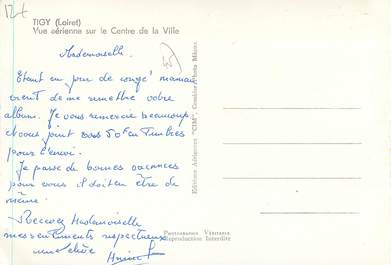 TIGY (Loiret)
Vue aérienne sur le Centre de la Ville
Mademoiselle
Etant en jour de congé maman
vient de me remettre votre
album. Je vous remercie beaucoup
et vous joint 50f en timbres
pour l'envoi.
Je passe de bonnes vacances
pour vous il doit en être de
même.
Recevez Mademoiselle
mes sentiments respectueux
une élève
Editions Aériennes "CIM", Combier Mâcon
Photographie Véritable
Reproduction Interdite